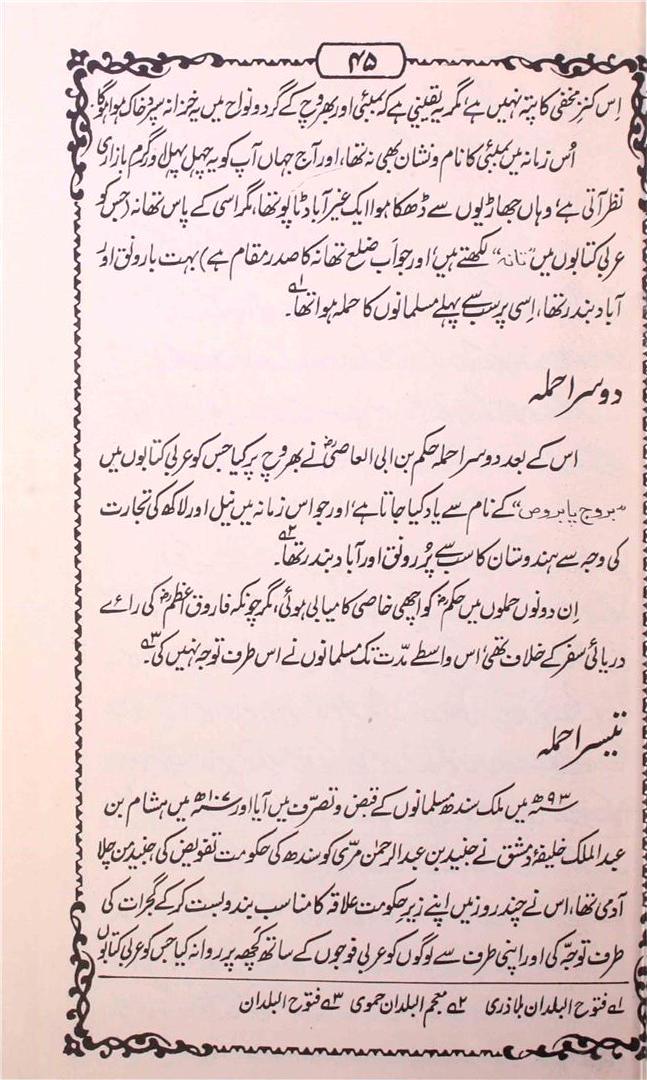 ۴۵
اِس کنزِ مخفی کا پتہ نہیں ہے، مگر یہ یقینی ہے کہ بمبئی اور بھروچ کے گرد و نواح میں یہ خزانہ سپردِ خاک ہوا ہوگا
اُس زمانہ میں بمبئی کا نام و نشان بھی نہ تھا، اور آج جہاں آپ کو یہ چہل پہل اور گرم بازاری
نظر آتی ہے، وہاں جھاڑیوں سے ڈھکا ہوا ایک غیر آباد ٹاپو تھا، مگر اسی کے پاس تھانہ (جس کو
عربی کتابوں میں "تانہ" لکھتے ہیں، اور جو اَب ضلع تھانہ کا صدر مقام ہے) بہت بارونق اور
آباد بندر تھا، اِسی پر سب سے پہلے مسلمانوں کا حملہ ہوا تھا۱؎۔
دوسرا حملہ
اس کے بعد دوسرا حملہ حکم بن ابی العاصیؓ نے بھروچ پر کیا جس کو عربی کتابوں میں
"بروج یا بروص" کے نام سے یاد کیا جاتا ہے، اور جو اس زمانہ میں نیل اور لاکھ کی تجارت
کی وجہ سے ہندوستان کا سب سے پُر رونق اور آباد بندر تھا۲؎۔
اِن دونوں حملوں میں حکمؓ کو اچھی خاصی کامیابی ہوئی، مگر چونکہ فاروق اعظمؓ کی رائے
دریائی سفر کے خلاف تھی، اس واسطے مدّت تک مسلمانوں نے اس طرف توجہ نہیں کی۳؎۔
تیسرا حملہ
۹۳ھ میں ملک سندھ مسلمانوں کے قبض و تصرّف میں آیا اور ۱۰۷ھ میں ہشام بن
عبدالملک خلیفۂ دمشق نے جنید بن عبدالرحمٰن مرّی کو سندھ کی حکومت تفویض کی جنید من چلا
آدمی تھا، اس نے چند روز میں اپنے زیرِ حکومت علاقہ کا مناسب بندوبست کر کے گجرات کی
طرف توجّہ کی اور اپنی طرف سے لوگوں کو عربی فوجوں کے ساتھ کَچھ پر روانہ کیا جس کو عربی کتابوں
۱؎ فتوح البلدان بلاذری ۲؎ معجم البلدان حموی ۳؎ فتوح البلدان